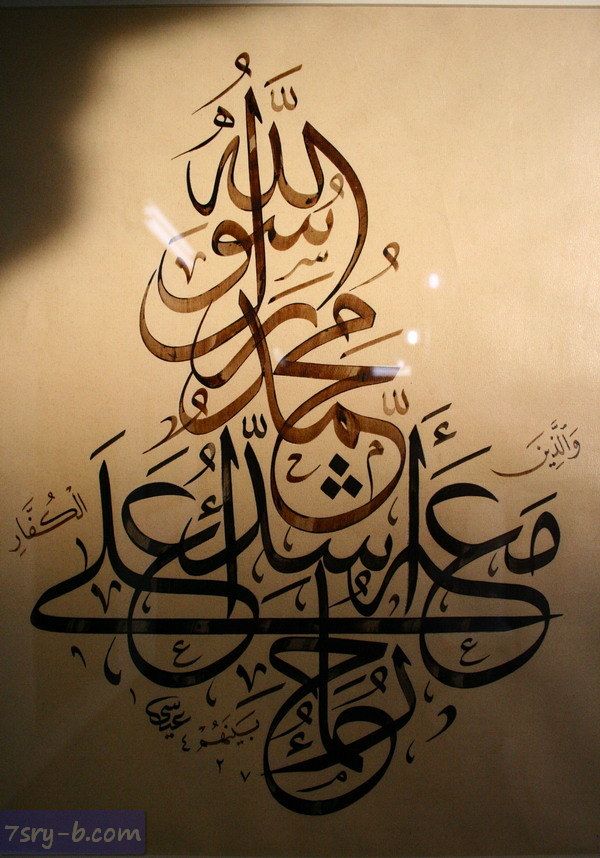 مُحَمَّدٌ رَسُولُ اللَّهِ
وَالَّذِينَ مَعَهُ أَشِدَّاءُ عَلَى الْكُفَّارِ
رُحَمَاءُ بَيْنَهُمْ
7sry-b.com